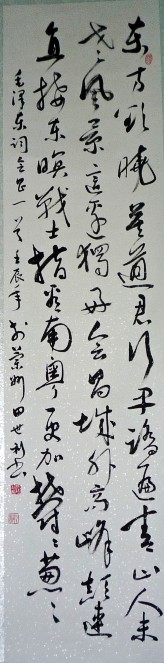 东方欲晓莫道君行早踏遍青山人未
老風景這邊獨好会昌城外高峰颠連
直接东溟戰士指看南粤更加鬱々葱々
毛澤东词会昌一首 壬辰年 於州 田世利书